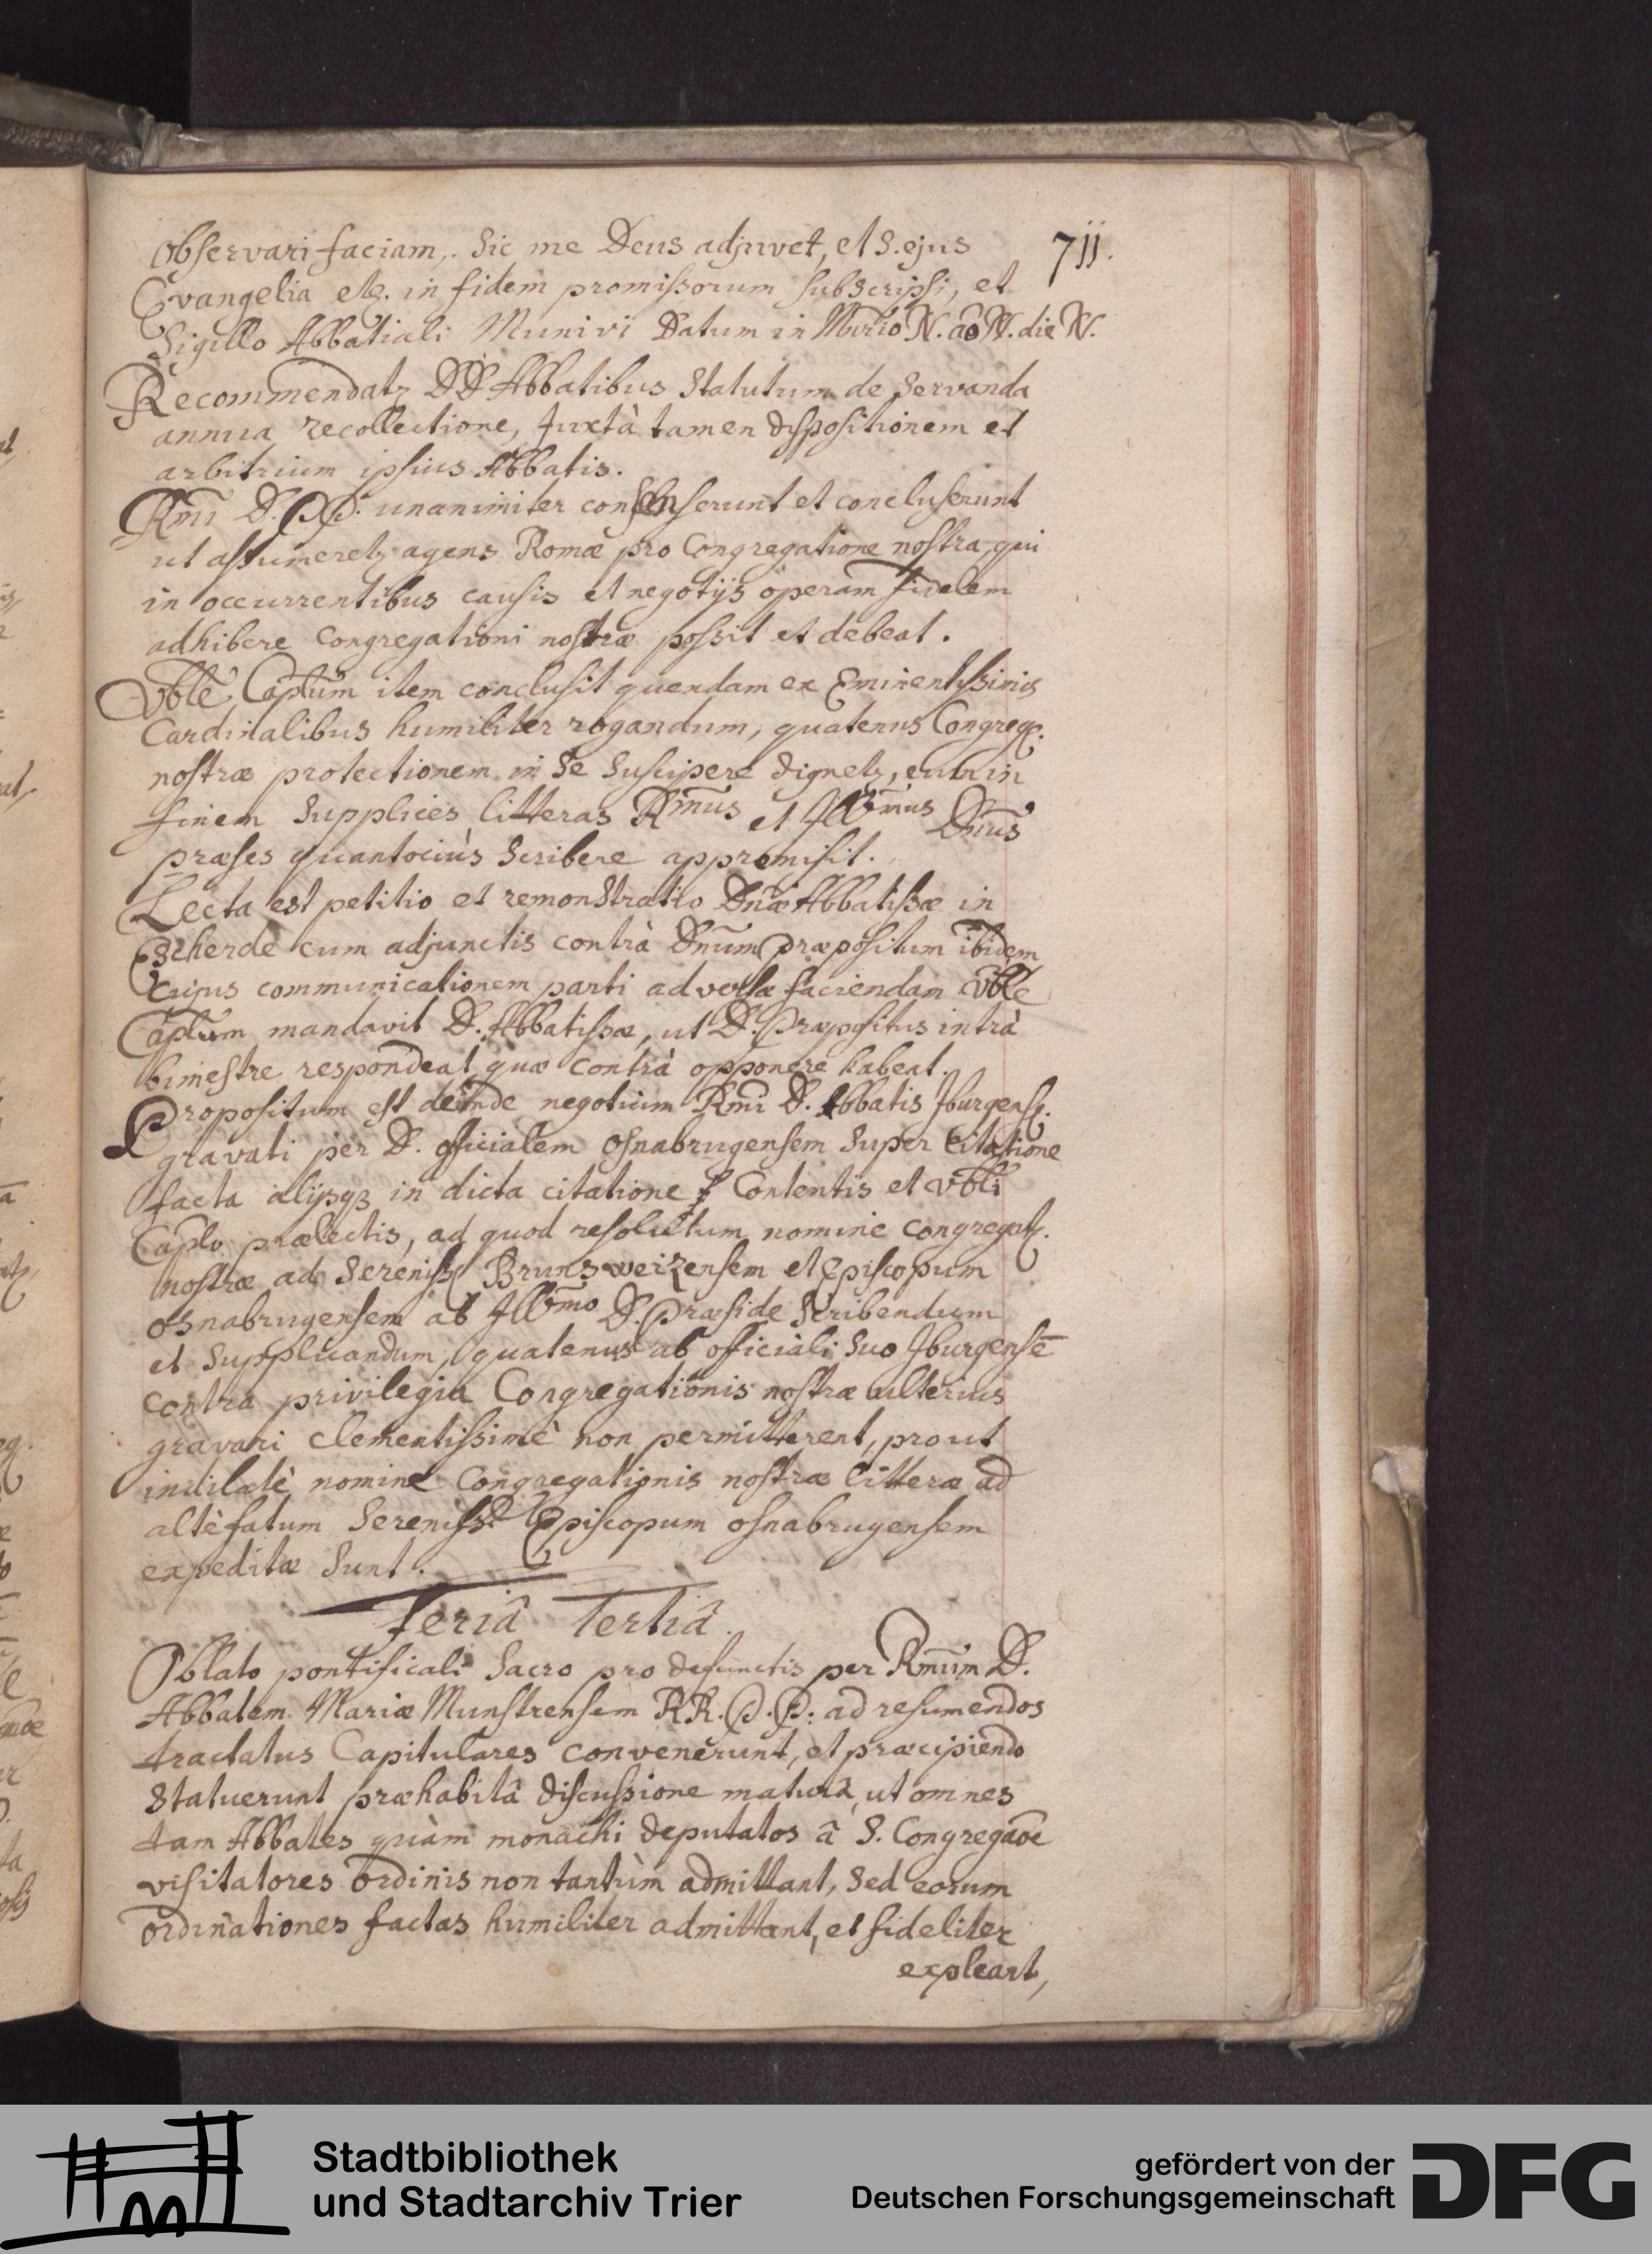 711.
observari faciam, Sic me Deus adjuvet, et S. ejus
Evangelia etc. in fidem promissorum subscripsi, et
Sigillo Abbatiali Munivi Datum in Mnrio N. ao N. die N.
Recommendatz DD Abbatibus Statutum de servanda
annua recollectione, Juxtà tamen dispositionem et
arbitrium ipsius Abbatis.
Rmi D. PP. unanimiter consenserunt et concluserunt
ut assumeretz agens Romæ pro Congregatione nostra, qui
in occurrentibus causis et negotijs operam fidelem
adhibere Congregationi nostræ possit et debeat.
Vble Caplum item conclusit quendam ex Eminentissimis
Cardinalibus humiliter rogandum, quatenus Congreg.
nostræ protectionem in se suscipere dignetz, eum in
finem supplices litteras Rmus et Illmus Dnus
præses quantociùs scribere appromisit.
Lecta est petitio et remonstratio Dnæ Abbatissæ in
Escherde cum adjunctis contrà Dnum præpositum ibidem
cujus communicationem parti adversæ faciendam Vble
Caplum mandavit D. Abbatissæ, ut D. Præpositus intrà
bimestre respondeat quæ contrà opponere habeat.
Propositum est deinde negotium Rmi D. Abbatis Iburgens.
gravati per D. officialem osnabrugensem super Citatione
facta alijsqz in dicta citatione Contentis et Vbli
Caplo prælectis, ad quod resolutum nomine congregat.
nostræ ad Sereniss Brunsweizensem et Episcopum
osnabrugensem ab Illmo D. Præside scribendum
et supplicandum, quatenus ab officiali suo Iburgensē
contra privilegia Congregationis nostræ ulterius
gravari clementissimè non permitterent, prout
indilatè nomine Congregationis nostræ litteræ ad
altèfatum Sereniss Episcopum osnabrugensem
expeditæ sunt.
Feriâ Tertiâ.
Oblato pontificali Sacro pro defunctis per Rmum D.
Abbatem Mariæ Munstrensem RR. P.P. ad resumendos
tractatus Capitulares convenerunt, et præcipiendo
Statuerunt præhabitâ discussione maturâ, ut omnes
tam Abbates quàm monachi deputatos â S. Congregaōe
visitatores ordinis non tantùm admittant, sed eorum
ordinationes factas humiliter admittant, et fideliter
expleant,
Stadtbibliothek
und Stadtarchiv Trier
gefördert von der
Deutschen Forschungsgemeinschaft
DFG